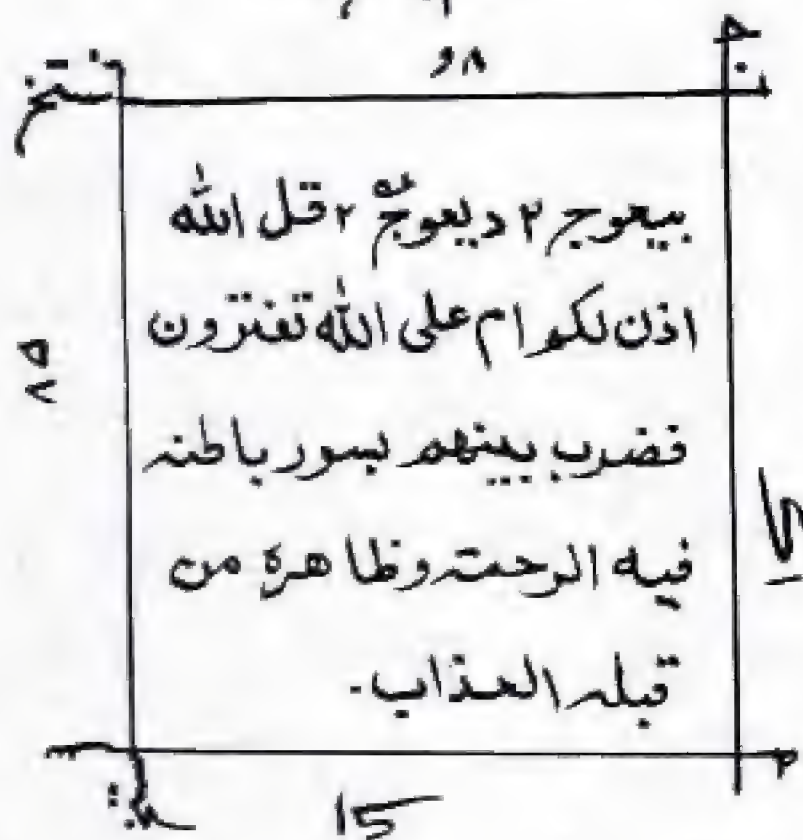 ٨ و
بيعوج ٢ ديعوج ٢ قل الله
اذن لكم ام على الله تفترون
فضرب بينهم بسور باطنه
فيه الرحمته وظاهره من
قبله العذاب.
15